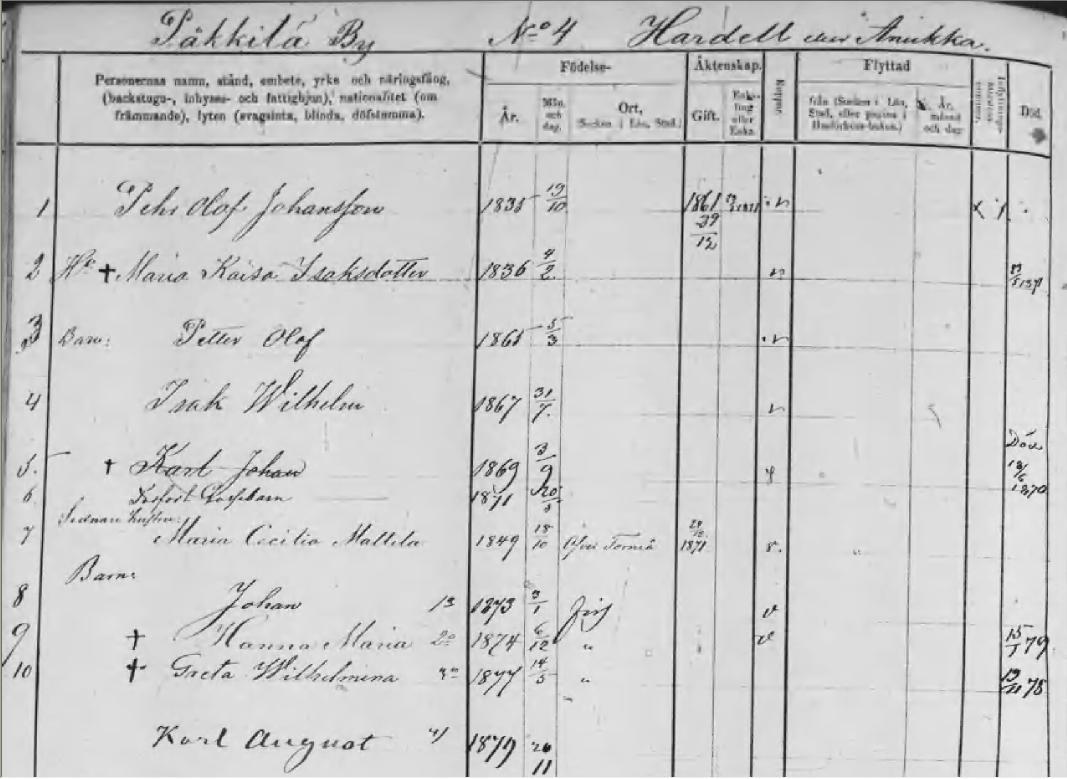 Päkkilä By No 4 Hardell eller Anukka.
Personernas namn, stånd, embete, yrke och näringsfång, (backstugu-, inhyses- och fattighjon), nationalitet (om främmande), lyten (svagsinta, blinda, döfstumma).
Födelse-
År.
Mån. och dag.
Ort, (Socken i Län, Stad.)
Äktenskap.
Gift.
Enkling eller Enka.
Koppor.
Flyttad
från (Socken i Län, Stad, eller pagina i
År, månad och dag
Död.
1 Pehr Olof Johansson 1835 19/10 1861 29/12
2 Hu † Maria Kaisa Isaksdotter 1836 4/2 v
3 Barn: Petter Olof 1865 5/3 v
4 Isak Wilhelm 1867 31/7 v
5. † Karl Johan 1869 3/9 Död 18/6 1870
6 1871 20/5
7 Sednare hustru: Maria Cecilia Mattila 1849 18/10 Öfver Torneå 1871 v.
Barn:
8 Johan 1873 3/1 v
9 † Hanna Maria 2o 1874 6/12 " v 15/1 79
10 † Greta Wilhelmina 1877 14/5 " 19/11 78
Karl August 1879 26/11